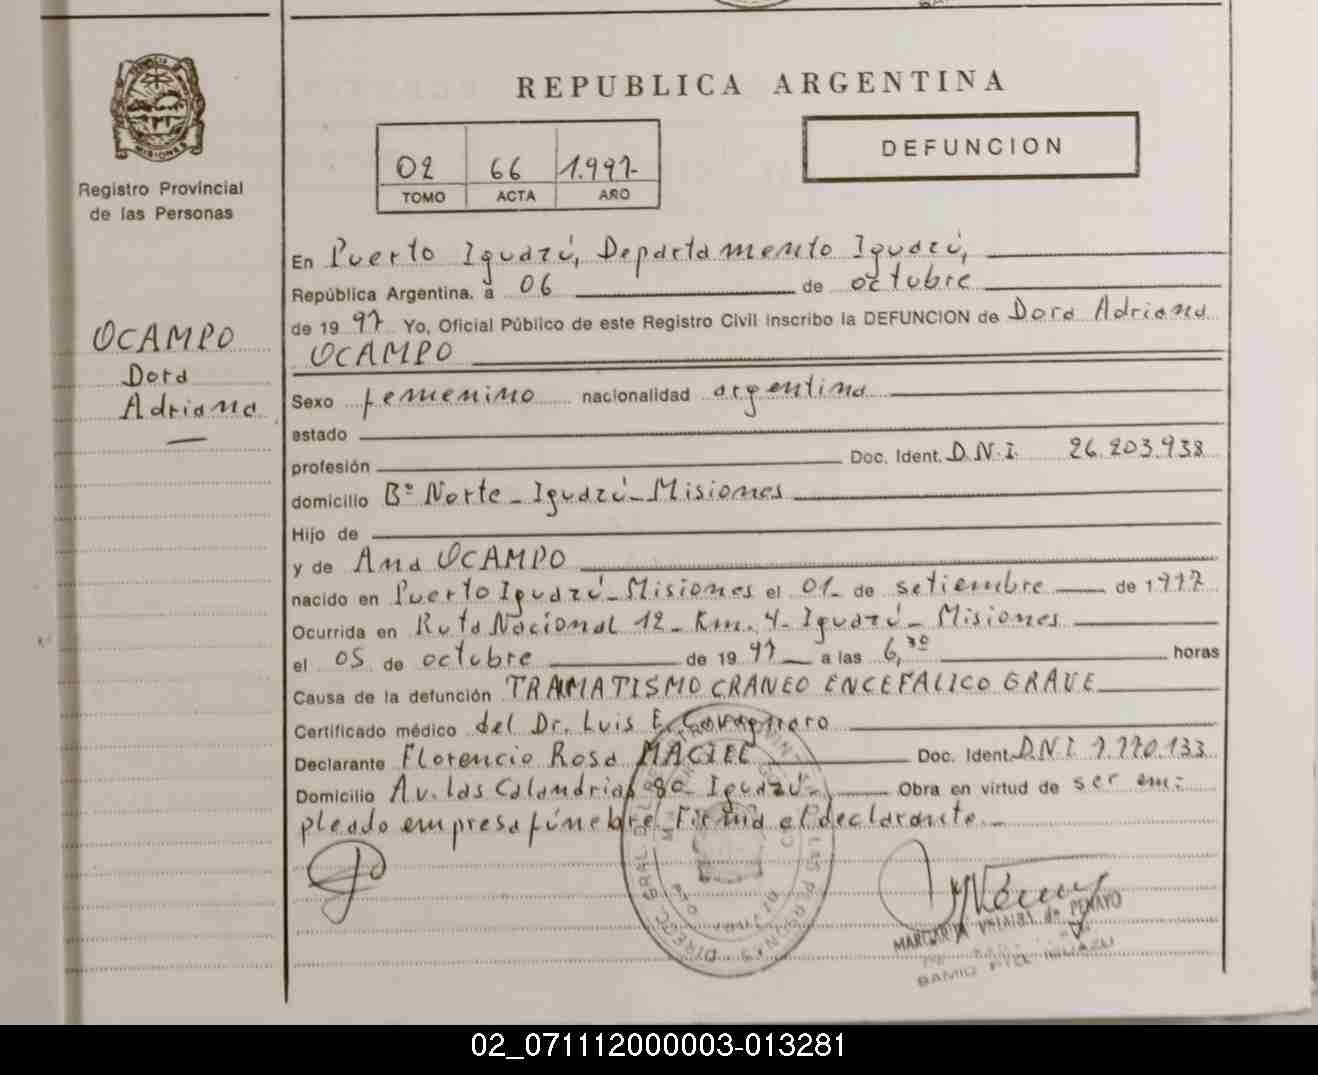 REPUBLICA ARGENTINA
MISIONES
Registro Provincial
de las Personas
02 66 1.997-
TOMO ACTA AÑO
DEFUNCION
OCAMPO
Dora
Adriana
En Puerto Iguazú, Departamento Iguazú,
República Argentina, a 06 de octubre
de 19 97 Yo, Oficial Público de este Registro Civil inscribo la DEFUNCION de Dora Adriana
OCAMPO
Sexo femenino nacionalidad argentina
estado
profesión Doc. Ident. D.N.I. 26.203.938
domicilio Bº Norte - Iguazú - Misiones
Hijo de
y de Ana OCAMPO
nacido en Puerto Iguazú - Misiones el 01- de setiembre de 1977
Ocurrida en Ruta Nacional 12 - Km. 4 - Iguazú - Misiones
el 05 de octubre de 19 97 a las 6,30 horas
Causa de la defunción TRAMATISMO CRANEO ENCEFALICO GRAVE
Certificado médico del Dr. Luis E.
Declarante Florencio Rosa MACIEL Doc. Ident. D.N.I. 7.770.133
Domicilio Av. las Calandrias 80 - Iguazú - Obra en virtud de ser em=
pleado empresa fúnebre. Firma el declarante.-
DE LAS PERSONAS
MARGARITA de PENAYO
IGUAZU
02_071112000003-013281